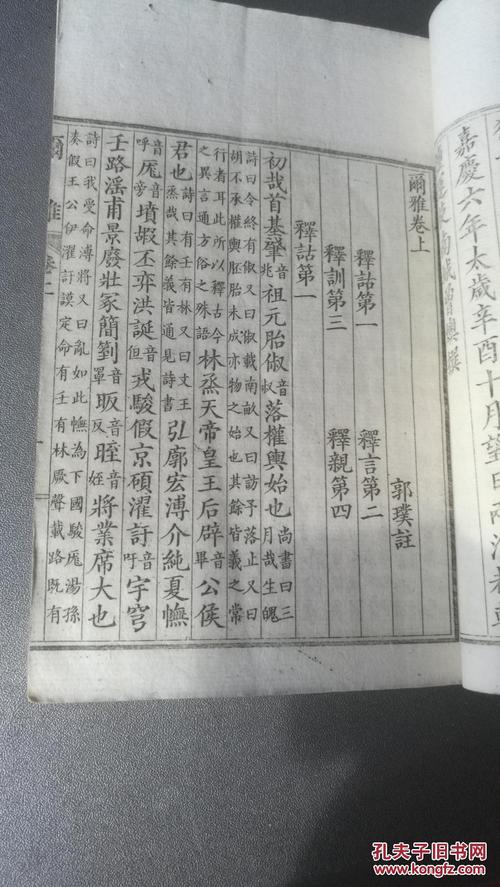 嘉慶六年太歲辛酉十月望日
南城曾燠撰
爾雅卷上
郭璞註
釋詁第一 釋言第二
釋訓第三 釋親第四
釋詁第一
初哉首基肈音兆祖元胎俶音叔落權輿始也尚書曰三月哉生魄
詩曰令終有俶又曰俶載南畝又曰訪予落止又曰
胡不承權輿胚胎未成亦物之始也其餘皆義之常
行者耳此所以釋古今之異言通方俗之殊語林烝天帝皇王后辟音畢公侯
君也詩曰有壬有林又曰文王烝哉其餘義皆通見詩書弘廓宏溥介純夏幠
音呼厖音旁墳嘏丕弈洪誕音但戎駿假京碩濯訏音吁宇穹
壬路淫甫景廢壯冢簡箌音罩昄音反晊音姪將業席大也
詩曰我受命溥將又曰亂如此幠為下國駿厖湯孫
奏假王公伊濯訏謨定命有壬有林厥聲載路既有
爾雅 卷上
孔夫子旧书网
www.kongfz.com